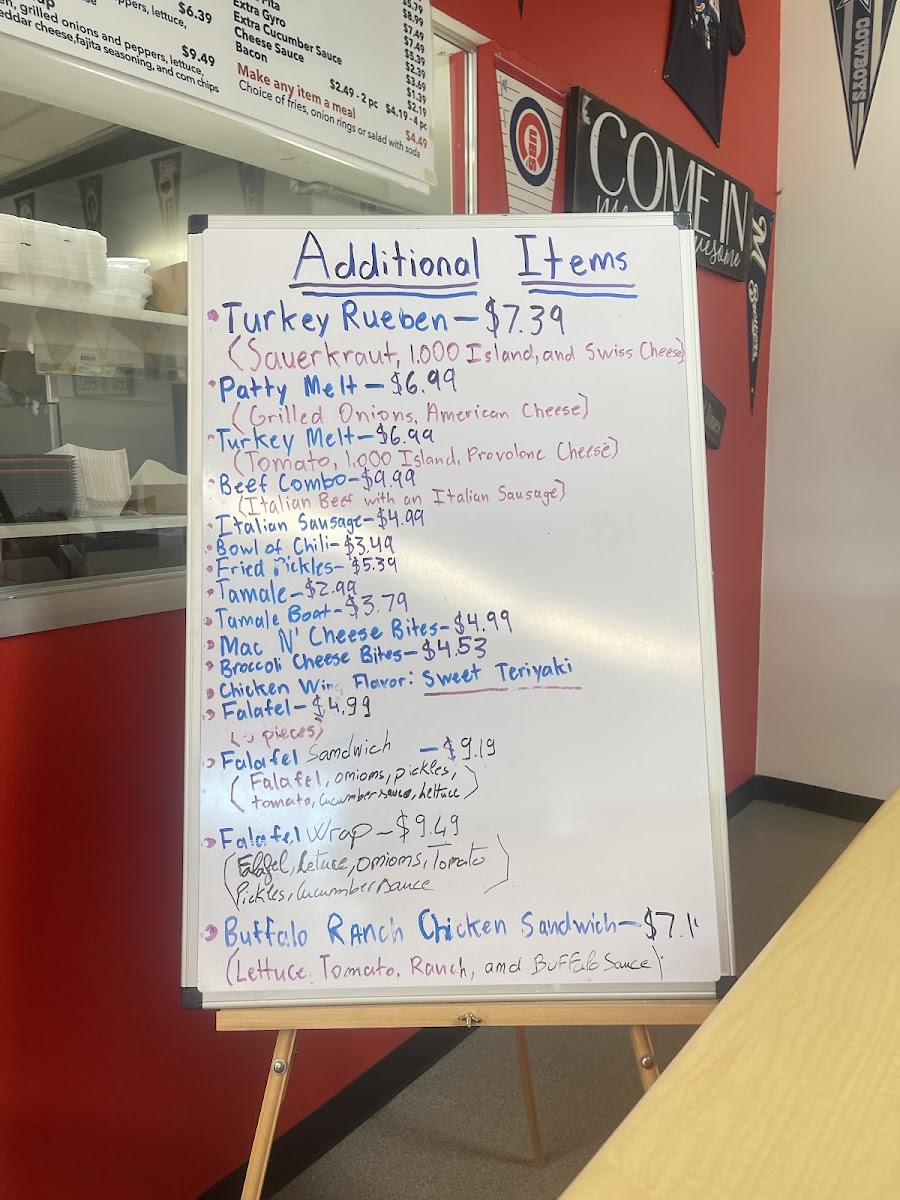 ppers, lettuce,
$6.39
n, grilled onions and peppers, lettuce,
eddar cheese, fajita seasoning, and corn chips
$9.49
Pita
Extra Gyro
Extra Cucumber Sauce
Cheese Sauce
Bacon
$2.49 - 2 pc $4.19 - 4 pc
$5.79
$8.99
$7.49
$7.49
$5.39
$2.39
$3.69
$1.39
$2.19
Make any item a meal
$4.49
Choice of fries, onion rings or salad with soda
COWBOYS
CUBS
COME IN
awesome
Additional Items
Turkey Rueben - $7.39
(Sauerkraut, 1,000 Island, and Swiss Cheese)
Patty Melt - $6.99
(Grilled Onions, American Cheese)
Turkey Melt - $6.99
(Tomato, 1,000 Island, Provolone Cheese)
Beef Combo - $9.99
(Italian Beef with an Italian Sausage)
Italian Sausage - $4.99
Bowl of Chili - $3.49
Fried Pickles - $5.39
Tamale - $2.99
Tamale Boat - $3.79
Mac N' Cheese Bites - $4.99
Broccoli Cheese Bites - $4.53
Chicken Wing Flavor: Sweet Teriyaki
Falafel - $4.99
pieces)
Falafel Sandwich - $9.19
(Falafel, onioms, pickles,
tomato, cucumber sauce, lettuce)
Falafel Wrap - $9.49
(Falafel, Letuce, onioms, Tomato
Pickles, Cucumber sauce)
Buffalo Ranch Chicken Sandwich - $7.1
(Lettuce, Tomato, Ranch, and Buffalo Sauce)